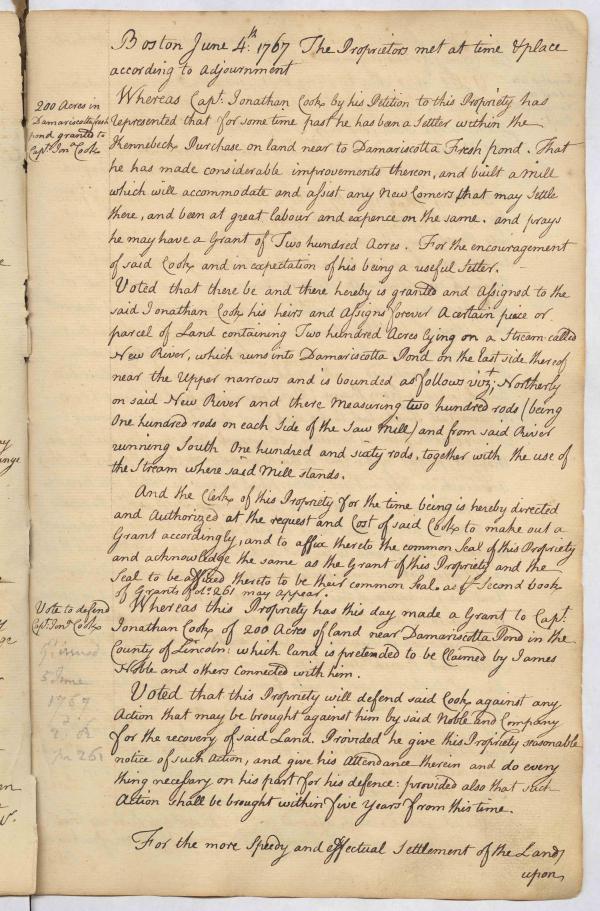 Boston June 4th. 1767 The Proprietors met at time & place
according to Adjournment
200 Acres in
Damariscotta fresh
pond granted to
Capt. Jnª Cook
Whereas Capt. Jonathan Cook by his Petition to this Propriety has
represented that for some time past he has been a Settler within the
Kennebeck Purchase on land near to Damariscotta Fresh pond. That
he has made considerable improvements thereon, and built a Mill
which will accommodate and assist any New Comers that may Settle
there, and been at great labour and expence on the same. and prays
he may have a Grant of Two hundred Acres. For the encouragement
of said Cook and in expectation of his being a useful Settler.
Voted that there be and there hereby is granted and Assigned to the
said Jonathan Cook his heirs and Assigns forever A certain piece or
parcel of Land containing Two hundred Acres lying on a Stream called
New River, which runs into Damariscotta Pond on the East side thereof
near the Upper narrows and is bounded as follows vizt; Northerly
on said New River and there Measuring two hundred rods (being
One hundred rods on each Side of the Saw Mill) and from said River
running South One hundred and sixty rods, together with the use of
the Stream where said Mill stands.
And the Clerk of this Propriety for the time being is hereby directed
and Authorized at the request and Cost of said Cook to make out a
Grant accordingly, and to affix thereto the common Seal of this Propriety
and acknowledge the same as the Grant of this Propriety and the
Seal to be affixed thereto to be their common Seal. as ye Second book
of Grants Fol: 261 may appear.
Vote to defend
Capt. Jonª Cook
Whereas this Propriety has this day made a Grant to Capt.
Jonathan Cook of 200 Acres of land near Damariscotta Pond in the
County of Lincoln: which land is pretended to be Claimed by James
Noble and others Connected with him.
5 June
1767
2d. B
pa 261
Voted that this Propriety will defend said Cook against any
Action that may be brought against him by said Noble and Company
for the recovery of said Land. Provided he give this Propriety seasonable
notice of such Action, and give his Attendance therein and do every
thing necessary on his part for his defence: provided also that such
Action shall be brought within five Years from this time.
For the more Speedy and effectual Settlement of the Land
upon